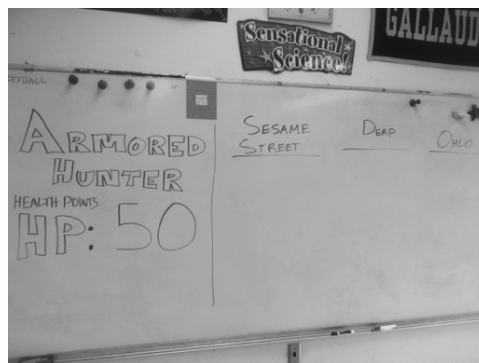 Sensational
Science!
GALLAUD
ARMORED
HUNTER
HEALTH POINTS
HP: 50
SESAME
STREET
DEAP
OHLO